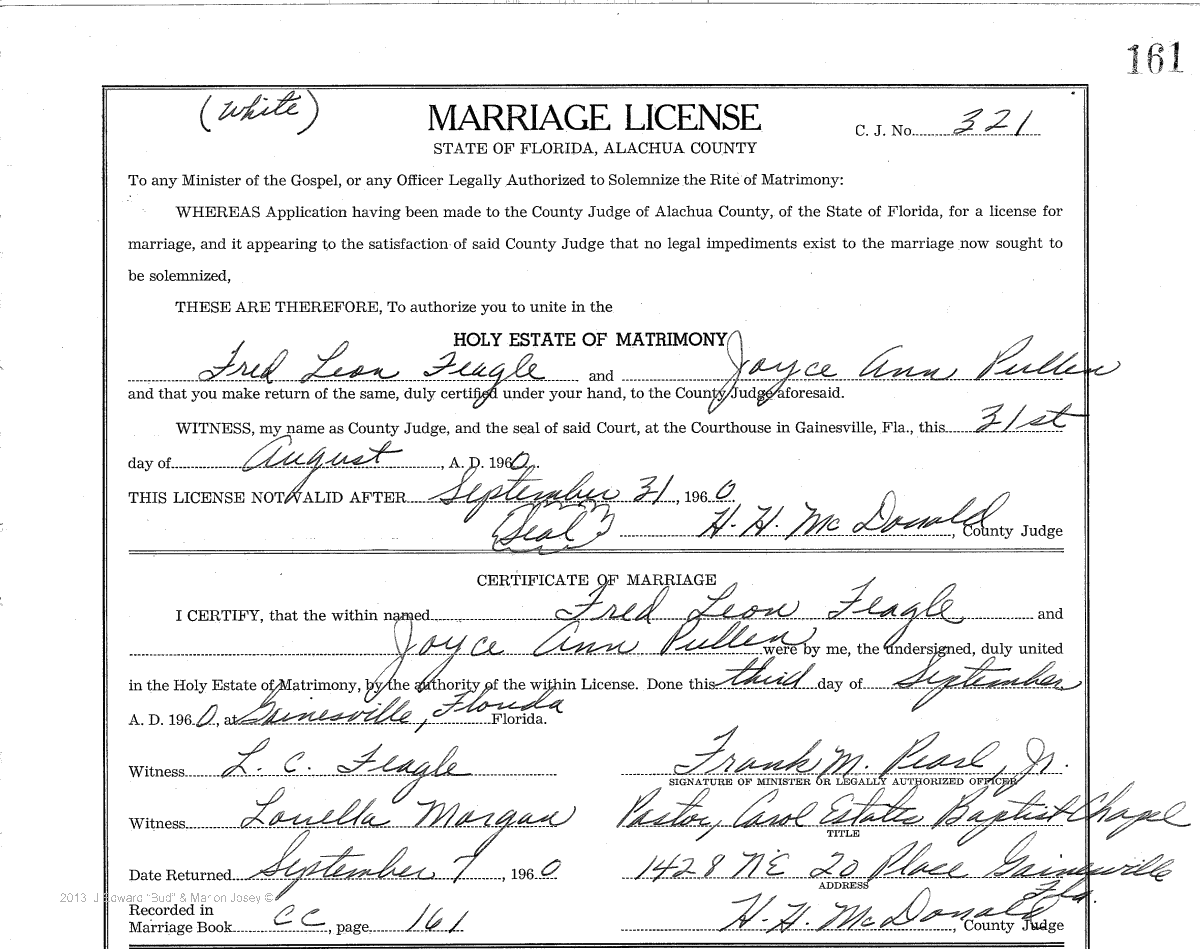 161
(White)
MARRIAGE LICENSE
C. J. No. 321
STATE OF FLORIDA, ALACHUA COUNTY
To any Minister of the Gospel, or any Officer Legally Authorized to Solemnize the Rite of Matrimony:
WHEREAS Application having been made to the County Judge of Alachua County, of the State of Florida, for a license for
marriage, and it appearing to the satisfaction of said County Judge that no legal impediments exist to the marriage now sought to
be solemnized,
THESE ARE THEREFORE, To authorize you to unite in the
HOLY ESTATE OF MATRIMONY
Fred Leon Feagle and Joyce Ann Pullen
and that you make return of the same, duly certified under your hand, to the County Judge aforesaid.
WITNESS, my name as County Judge, and the seal of said Court, at the Courthouse in Gainesville, Fla., this 31st
day of August, A. D. 1960.
THIS LICENSE NOT VALID AFTER September 31, 1960
(Seal) H. H. McDonald, County Judge
CERTIFICATE OF MARRIAGE
I CERTIFY, that the within named Fred Leon Feagle and
Joyce Ann Pullen were by me, the undersigned, duly united
in the Holy Estate of Matrimony, by the authority of the within License. Done this third day of September
A. D. 1960, at Gainesville, Florida Florida.
Witness L. C. Feagle Frank M. Pearl, Jr.
SIGNATURE OF MINISTER OR LEGALLY AUTHORIZED OFFICER
Witness Louella Morgan Pastor, Carol Estates Baptist Chapel
TITLE
Date Returned September 7, 1960 1428 NE 20 Place Gainesville
ADDRESS Fla.
2013 J Edward "Bud" & Marion Josey ©
Recorded in
Marriage Book CC, page 161 H. H. McDonald, County Judge